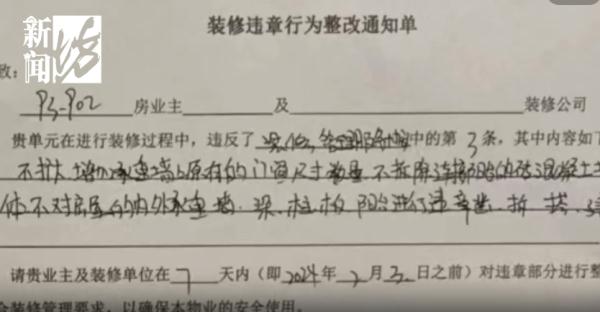 新闻
坊
装修违章行为整改通知单
致:
93-902 房业主 及 装修公司
贵单元在进行装修过程中，违反了 管理 中的第 3 条，其中内容如下
不扩大增加承重墙上原有的门窗尺寸数量，不拆除连接阳台的砖混凝土
体 不对房屋的内外承重墙、梁、柱、板、阳台进行违章凿、拆、搭、
请贵业主及装修单位在 7 天内（即2024年 2 月 3 日之前）对违章部分进行整
装修管理要求，以确保本物业的安全使用。